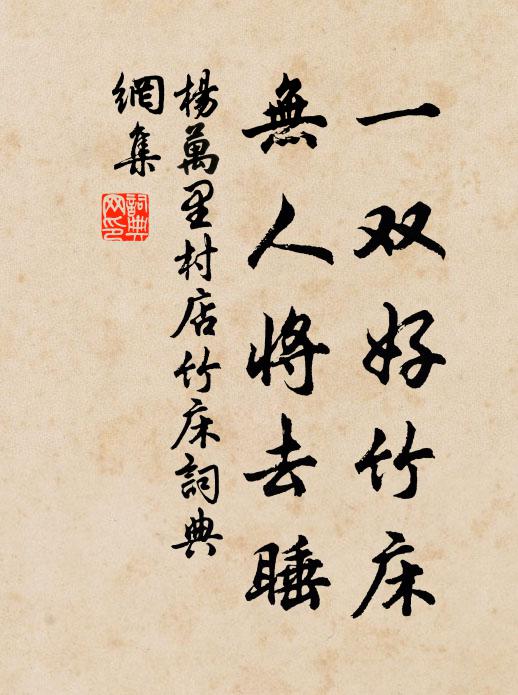 一双好竹床
無人将去睡
楊萬里村店竹床詞典
網集
詞典
网印